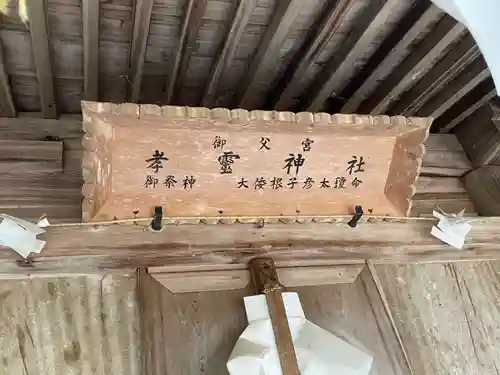 御父宮
孝靈神社
御祭神　大倭根子彦太瓊命